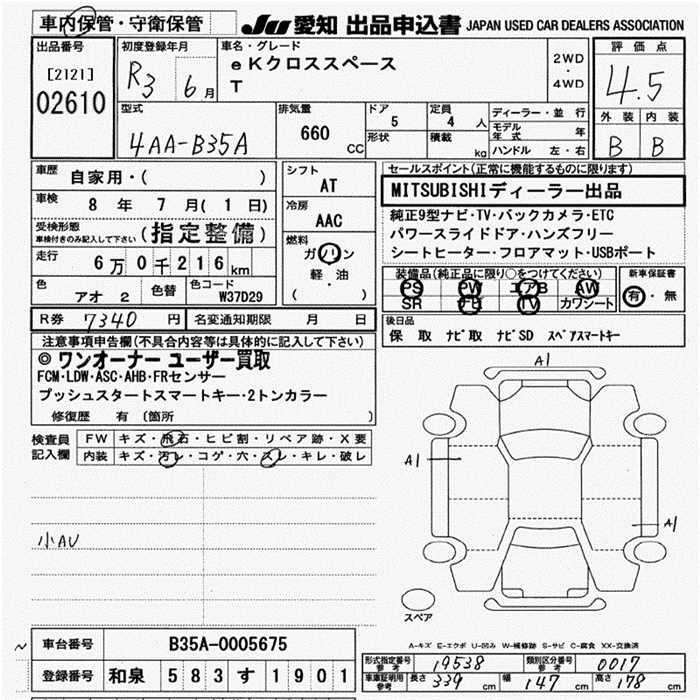 車内保管・守衛保管 JU 愛知 出品申込書 JAPAN USED CAR DEALERS ASSOCIATION
出品番号
[2121]
02610
初度登録年月
R3 6月
車名・グレード
eKクロススペース
T
2WD
・
4WD
評価点
4.5
外装 内装
B B
型式
4AA-B35A
排気量
660 CC
ドア 5
形状
定員 4 人
積載 kg
ディーラー・並行
モデル年式 年
ハンドル 左・右
車歴 自家用・( )
車検 8年 7月( 1日)
受検形態
車検付きのみ記入して下さい (指定整備)
走行 6万0千216km
色 アオ 2 色替 色コード W37D29
シフト
AT
冷房
AAC
燃料
ガソリン
軽・油
( )
セールスポイント(正常に機能するものに限ります)
MITSUBISHIディーラー出品
純正9型ナビ・TV・バックカメラ・ETC
パワースライドドア・ハンズフリー
シートヒーター・フロアマット・USBポート
装備品(純正品に限り○をつけてください)
PS PW エアB AW
SR TV カワシート
新車保証書
有・無
R券 7340 円 名変通知期限 月 日
後日品
保 取 ナビ取 ナビSD スペアスマートキー
注意事項申告欄(不具合内容等は具体的に記入して下さい)
◎ワンオーナー ユーザー買取
FCM・LDW・ASC・AHB・FRセンサー
プッシュスタートスマートキー・2トンカラー
修復歴 有 〔箇所 〕
検査員記入欄
FW キズ・飛石・ヒビ割・リペア跡・X要
内装 キズ・汚レ・コゲ・穴・スレ・キレ・破レ
小AU
A1
A1
A1
スペア
A-キズ E-エクボ U-凹み W-補修跡 S-サビ C-腐食 XX-交換済
車台番号 B35A-0005675
登録番号 和泉 583 す 1901
型式指定番号 参考 19538 類別区分番号 参考 0017
車庫証明用 参考 長さ 339 cm 幅 147 cm 高さ 178 cm